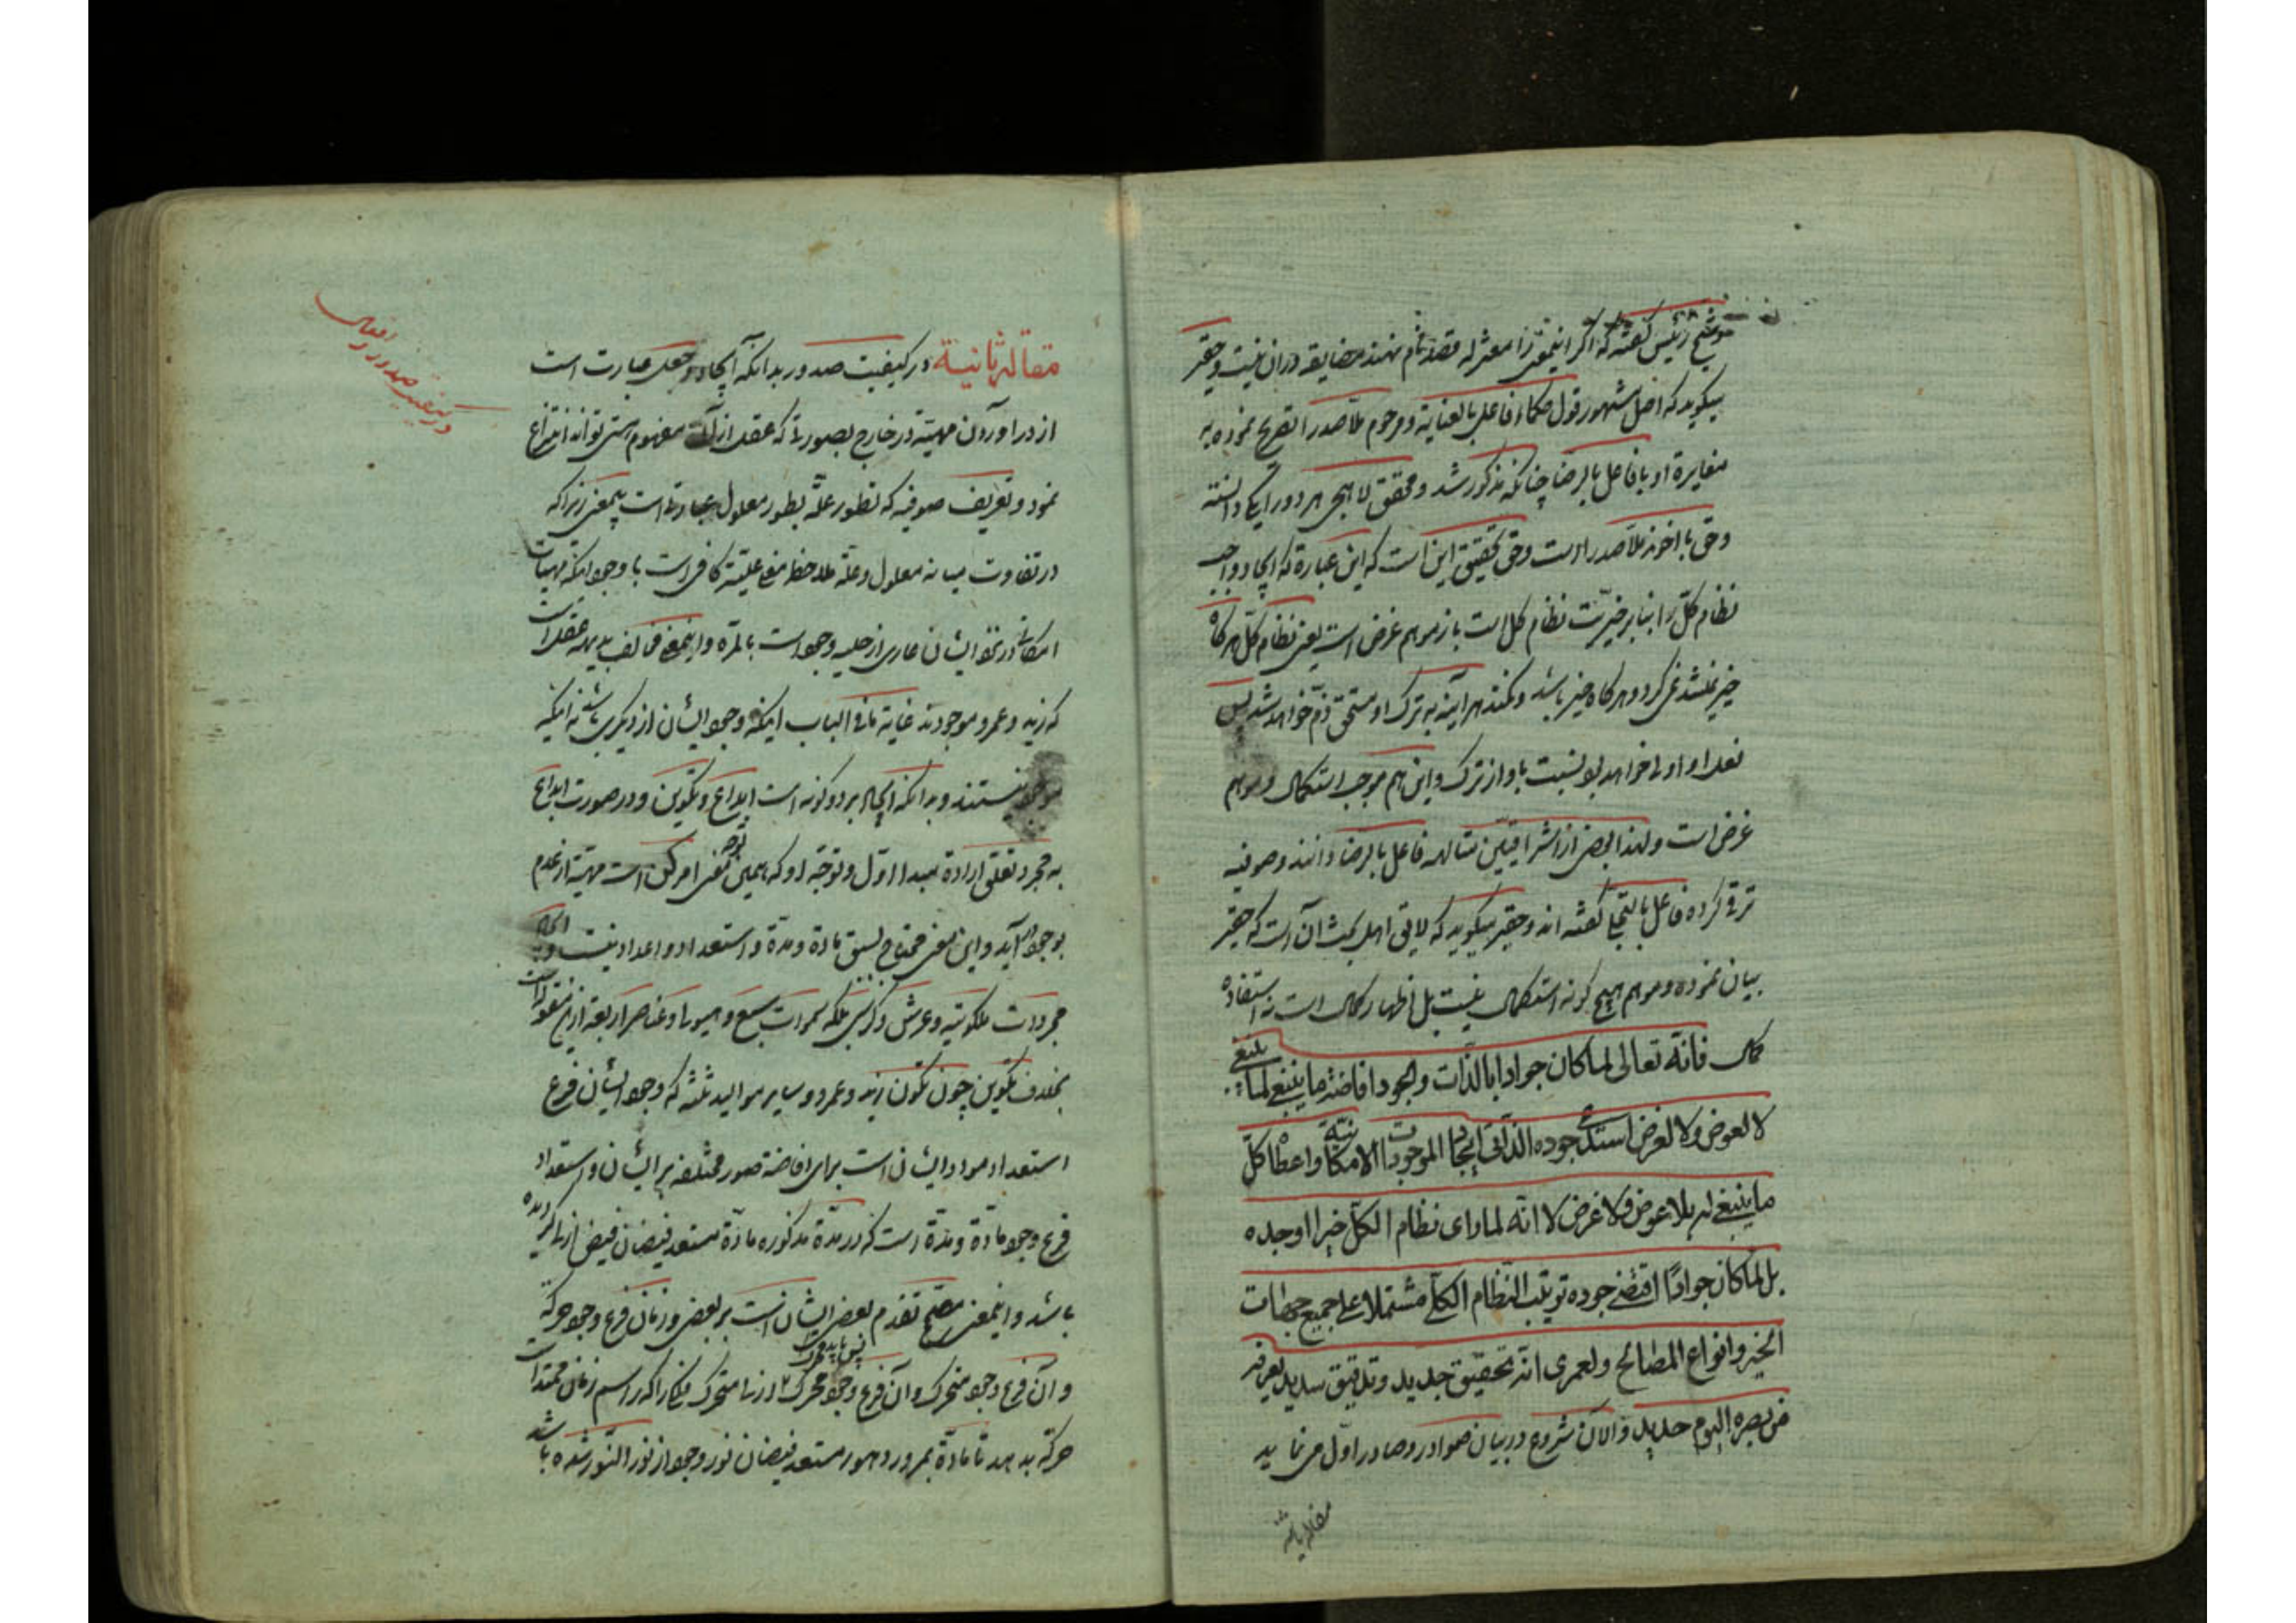 و شیخ رئیس گفته که اگر اینمعنی را معتزله قصد نام نهند مضایقه دران نیست و حقیر
میکوید که اصل مشهور قول حکماء فاعل بالعنایة و مرحوم ملا صدرا تصریح نموده به
مغایرة او با فاعل بالرضا چنانکه مذکور شد و محقق لاهجی هر دو را یکی دانسته
و حق با اخوند ملا صدرا است و حق تحقیق این است که این عبارة که ایجاد واجب
نظام کل را بنا بر خیریت نظام کل است باز موهم غرض است یعنی نظام کل هرکاه
خیر نمیشد نمی کرد و هرکاه خیر باشد و نکند هر آینه به ترک او مستحق ذم خواهد شد پس
فعل او اولی خواهد بود نسبت باو از ترک و این هم موجب استکمال و موهم
غرض است و لهذا بعضی از اشراقیین متألهه فاعل بالرضا دانند و صوفیه
ترقی کرده فاعل بالتجلی گفته اند و حقیر میکوید که لایق اهل بحث آن است که حقیر
بیان نموده و موهم هیچ کونه استکمال نیست بل اظهار کمال است نه استفاده
کمال فانه تعالی لما کان جوادا بالذات والجود افاضة ما ینبغی لما ینبغی
لا لعوض ولا لغرض استدعی جوده الذاتی ایجاد الموجودات الامکانیة واعطاء کل
ما ینبغی له بلا عوض ولا غرض لا انه لما رای نظام الکل خیرا اوجده
بل لما کان جوادا اقتضی جوده ترتیب النظام الکل مشتملا علی جمیع جهات
الخیر وانواع المصالح ولعمری انه تحقیق جدید وتدقیق سدید یعرفه
من بصره الیوم حدید والان شروع در بیان صوادر و صادر اول می نماید
مقاله ثانیة
مقاله ثانیة در کیفیت صدور بدانکه ایجاد و جعل عبارت است
از دراوردن مهیة در خارج بصورتی که عقل از آن مفهوم هستی تواند انتزاع
نمود و تعریف صوفیه که تطور علة بطور معلول عبارت است بهمین معنی زیرا که
در تفاوت میانه معلول و علة ملاحظه معنی علیة کافی است با وجود اینکه مهیات
امکانی در نظر ایشان عاری از حلیه وجود است بالمرة و اینمعنی مخالف بدیهه عقل است
که زید و عمرو موجودند غایة ما فی الباب اینکه وجود ایشان از دیگری باشد نه اینکه
موجود نیستند و بدانکه ایجاد بر دو کونه است ابداع و تکوین و در صورت ابداع
به مجرد تعلق ارادة مبدا اول و توجه او که همین توجه معنی امر کن است مهیة از عدم
بوجود آید و این معنی محتاج بسبق مادة و مدة و استعداد و اعداد نیست و ایجاد
مجردات ملکوتیه و عرش و کرسی بلکه سموات سبع و هیولی و عناصر اربعة ازین مقوله است
بخلاف تکوین چون تکون زید و عمرو و سایر موالید ثلثه که وجود ایشان فرع
استعداد مواد ایشان است برای افاضة صور مختلفه بر ایشان و استعداد
فرع وجود مادة و مدة است که در مدة مذکوره مادة مستعد فیضان فیض ازلی گردیده
باشد و اینمعنی مصحح تقدم بعضی ایشان است بر بعضی و زمان فرع وجود حرکة
و آن فرع وجود متحرک و آن فرع وجود محرک پس باید محرک ازلی متحرک فلکی را که راسم زمان ممتد است
حرکة بدهد تا مادة بمرور دهور مستعد فیضان نور وجود از نور النور شده باشد
در کیفیت صدور افعال